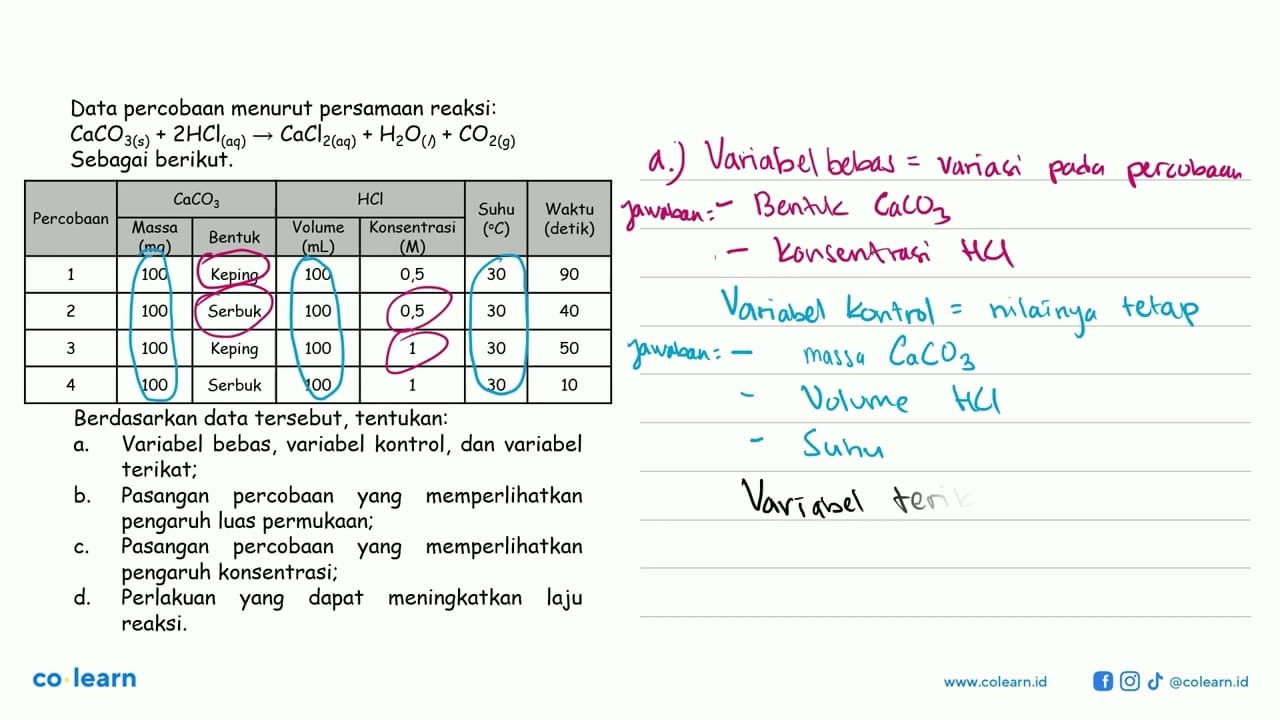 Data percobaan menurut persamaan reaksi:
CaCO3(s) + 2HCl(aq) → CaCl2(aq) + H2O(l) + CO2(g)
Sebagai berikut.
Percobaan CaCO3 HCl Suhu (°C) Waktu (detik)
Massa (mg) Bentuk Volume (mL) Konsentrasi (M)
1 100 Keping 100 0,5 30 90
2 100 Serbuk 100 0,5 30 40
3 100 Keping 100 1 30 50
4 100 Serbuk 100 1 30 10
Berdasarkan data tersebut, tentukan:
a. Variabel bebas, variabel kontrol, dan variabel
terikat;
b. Pasangan percobaan yang memperlihatkan
pengaruh luas permukaan;
c. Pasangan percobaan yang memperlihatkan
pengaruh konsentrasi;
d. Perlakuan yang dapat meningkatkan laju
reaksi.
a.) Variabel bebas = variasi pada percobaan
jawaban: - Bentuk CaCO3
- Konsentrasi HCl
Variabel kontrol = nilainya tetap
jawaban: - massa CaCO3
- Volume HCl
- Suhu
Variabel teri
co learn
www.colearn.id
@colearn.id